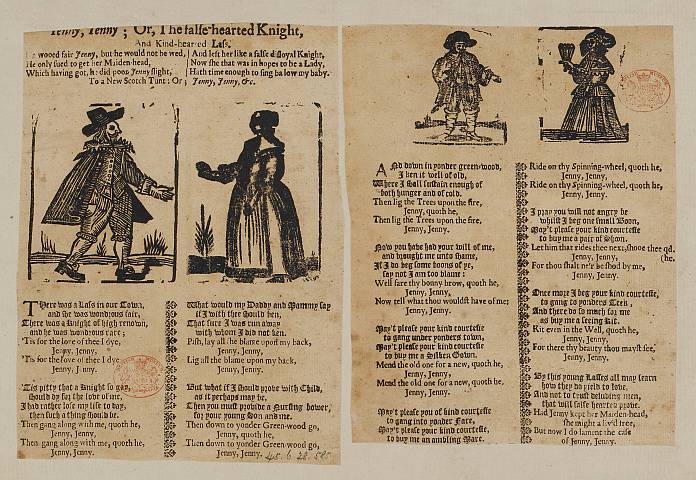 Jenny, Jenny; Or, The false-hearted Knight,
And Kind-hearted Lass.
wooed fair Jenny, but he would not be wed,
He only sued to get her Maiden-head,
Which having got, he did poor Jenny slight,
And left her like a false disloyal Knight,
Now she that was in hopes to be a Lady,
Hath time enough to sing ba low my baby.
To a New Scotch Tune: Or; Jenny, Jenny, &c.
There was a Lass in our Town,
and she was wondrous fair,
There was a Knight of high renown,
and he was wondrous rare;
'Tis for the love of thee I dye,
Jenny, Jenny,
'Tis for the love of thee I dye
Jenny, Jenny.
'Tis pitty that a Knight so gay,
should dy for the love of me,
I had rather lose my life to day,
then such a thing should be.
Then gang along with me, quoth he,
Jenny, Jenny,
Then gang along with me, quoth he,
Jenny, Jenny.
What would my Daddy and Mammy say
if I with thee should ken,
That sure I was run away
with whom I did not ken.
Pish, lay all the blame upon my back,
Jenny, Jenny,
Lig all the blame upon my back,
Jenny, Jenny.
But what if I should prove with Child,
as it perhaps may be,
Then you must provide a Nursing bower,
for your young Son and me.
Then down to yonder Green-wood go,
Jenny, quoth he,
Then down to yonder Green-wood go,
Jenny, Jenny.
And down in yonder green-wood,
I ken it well of old,
Where I shall sustain enough of
both hunger and of cold.
Then lig the Trees upon the fire,
Jenny, quoth he,
Then lig the Trees upon the fire,
Jenny, Jenny.
Now you have had your will of me,
and brought me unto shame,
If I do beg some boons of ye,
say not I am too blame:
Well fare thy bonny brow, quoth he,
Jenny, Jenny,
Now tell what thou wouldst have of me;
Jenny, Jenny.
May't please your kind courtesie
to gang under yonders town,
May't please your kind courtesie
to buy me a Silken Gown.
Mend the old one for a new, quoth he,
Jenny, Jenny,
Mend the old one for a new, quoth he,
Jenny, Jenny.
May't please you of kind courtesie
to gang into yonder Fare,
May't please your kind courtesie,
to buy me an ambling Mare.
Ride on thy Spinning-wheel, quoth he,
Jenny, Jenny,
Ride on thy Spinning-wheel, quoth he,
Jenny, Jenny.
I pray you will not angry be
whilst I beg one small Boon,
May't please your kind courtesie
to buy me a pair of Shoon.
Let him that rides thee next, shooe thee qd.
Jenny, Jenny, (he.
For thou shalt ne'r be shod by me,
Jenny, Jenny.
Once more I beg your kind courtesie,
to gang to yonders
And there do so much for me
as buy me a seeing Kit.
Kit even in the Well, quoth he,
Jenny, Jenny,
For there thy beauty thou mayst see,
Jenny, Jenny.
By this young Lasses all may learn
how they do yield to love,
And not to trust deluding men,
that will false hearted prove.
Had Jenny kept her Maiden-head,
she might a liv'd tree,
But now I do lament the case
of Jenny, Jenny.